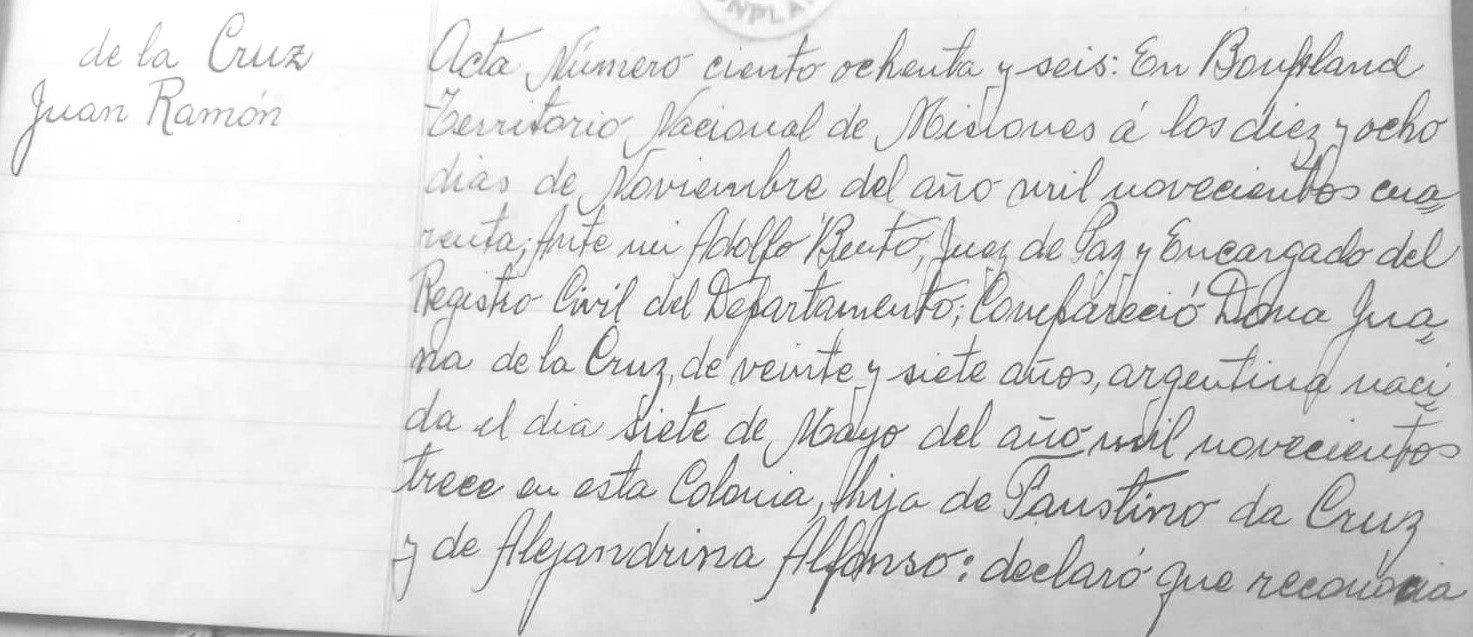 ONPLA
de la Cruz
Juan Ramón
Acta Número ciento ochenta y seis: En Bonpland
Territorio Nacional de Misiones á los diez y ocho
dias de Noviembre del año mil novecientos cua=
renta; Ante mi Adolfo Bento, Juez de Paz y Encargado del
Registro Civil del Departamento; Compareció Doña Jua=
na de la Cruz, de veinte y siete años, argentina naci=
da el dia siete de Mayo del año mil novecientos
trece en esta Colonia, hija de Faustino da Cruz
y de Alejandrina Alfonso: declaró que reconocia